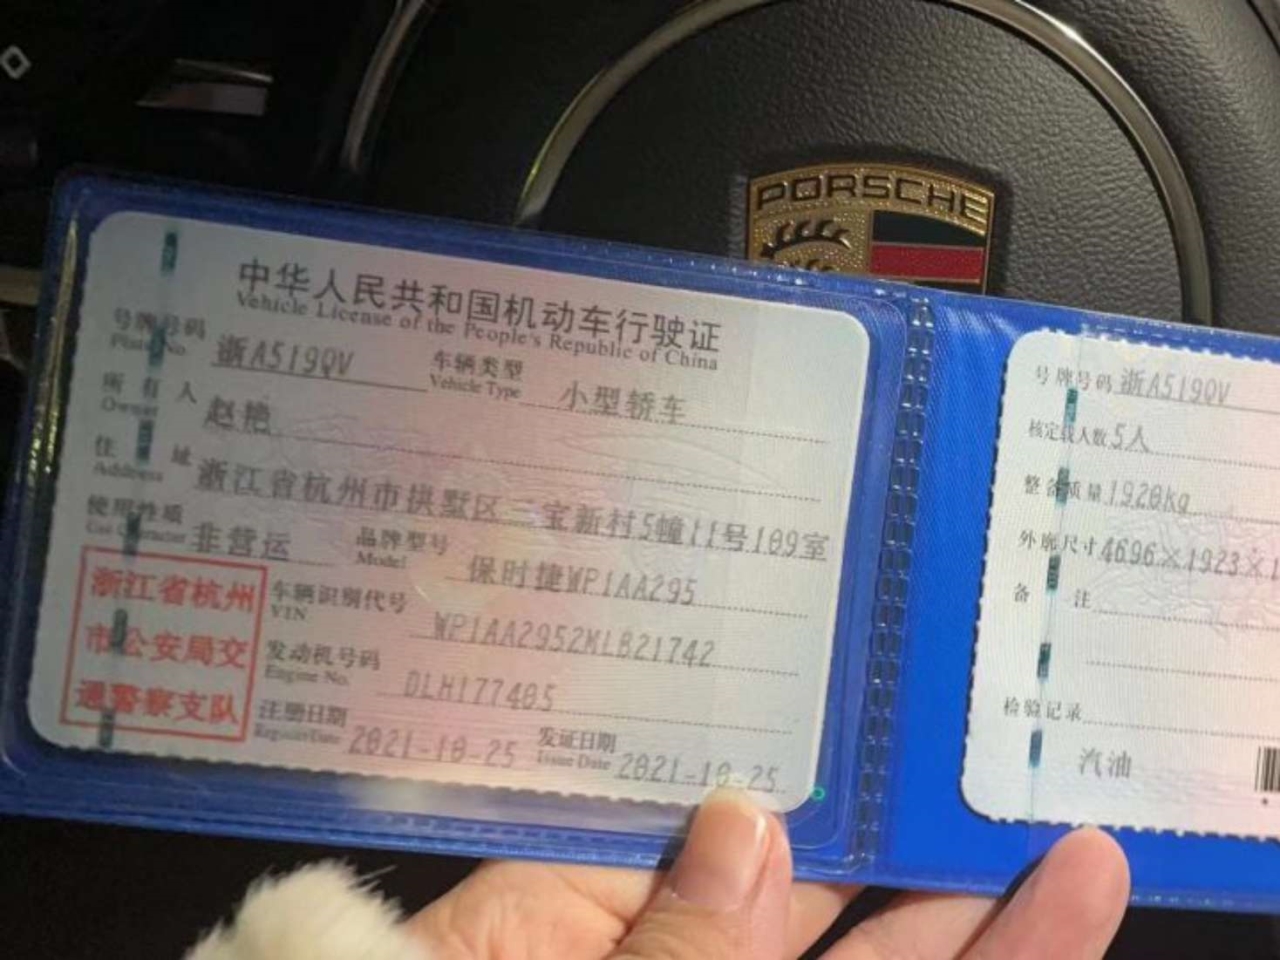 PORSCHE
中华人民共和国机动车行驶证
Vehicle License of the People's Republic of China
号牌号码 浙A519QV 车辆类型 小型轿车
Plate No. Vehicle Type
所有人 赵艳
Owner
住址 浙江省杭州市拱墅区三宝新村5幢11号109室
Address
使用性质 非营运 品牌型号 保时捷WP1AA295
Use Character Model
浙江省杭州
市公安局交
通警察支队
车辆识别代号 WP1AA2952MLB21742
VIN
发动机号码 DLH177405
Engine No.
注册日期 2021-10-25 发证日期 2021-10-25
Register Date Issue Date
号牌号码 浙A519QV
核定载人数 5人
整备质量 1920kg
外廓尺寸 4696×1923×1
备注
检验记录
汽油